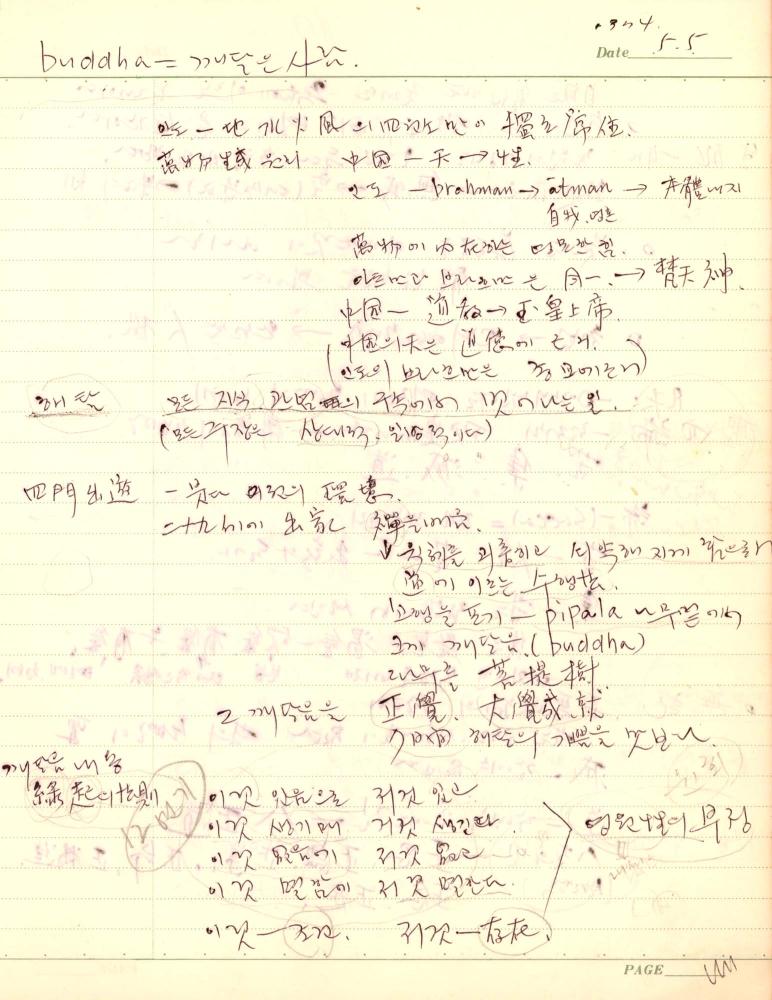 1974.
Date 5.5
buddha = 깨달은 사람.
인도 - 地 水 火 風 의 四원소만이
萬物 生成 원리 中国 - 天 → 性.
인도 - brahman → ātman → 本體내지
自我, 영혼
萬物에 内在하는 영묘한 힘.
아트만과 브라흐만은 同一. → 梵天神.
中国 - 道教 → 玉皇上帝.
(中国의 天은 道德에 근거.
인도의 브라흐만은 종교에 근거)
해탈 모든 지식, 관념의 구속에서 벗어나는 일.
(모든 규정은 상대적, 일방적이다)
四門出遊 - 붓다
二十九세에 出家 禪을 배움.
육체를 괴롭히고
道에 이르는 수행법.
고행을 포기 - pipala 나무밑에서
크게 깨달음. (buddha)
그 나무를 菩提樹.
그 깨달음을 正覺. 大覺成就
7日間 해탈의 기쁨을 맛보다.
깨달음 내용
緣起의 法則
12 연기
이것 있음으로 저것 있고
이것 생기매 저것 생긴다.
이것 없음에 저것 없고
이것 멸함에 저것 멸한다.
영원性의 부정
이것 - 조건. 저것 - 存在.
PAGE